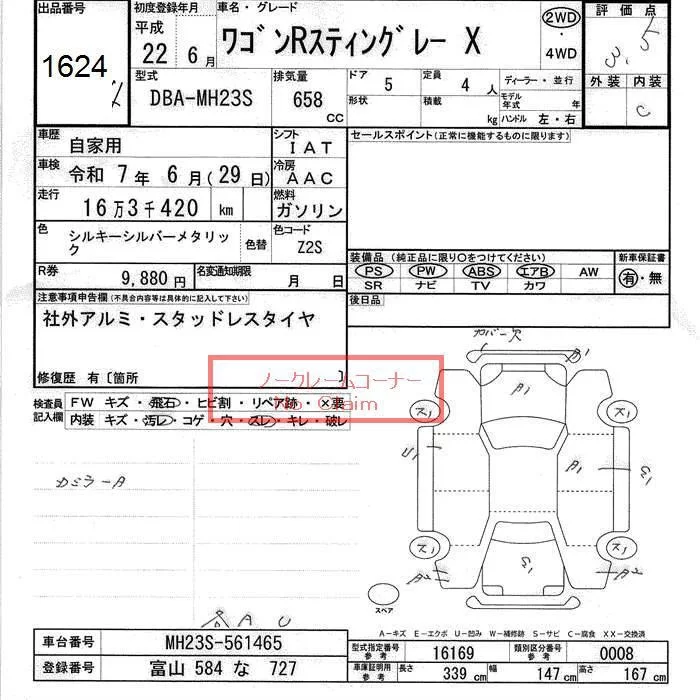 出品番号
1624
初度登録年月
平成
22 6月
車名・グレード
ワゴンRスティングレー X
2WD
・
4WD
評価点
3.5
型式
DBA-MH23S
排気量
658
CC
ドア
5
定員
4 人
形状
積載
kg
ディーラー・並行
モデル年式 年
ハンドル 左・右
外装 内装
C
車歴
自家用
シフト
IAT
車検
令和 7年 6月(29日)
冷房
AAC
走行
16万3千420 km
燃料
ガソリン
色
シルキーシルバーメタリック
色替
色コード
Z2S
R券
9,880円
名変通知期限
月 日
セールスポイント(正常に機能するものに限ります)
装備品(純正品に限り○をつけてください)
新車保証書
PS PW ABS エアB AW
SR ナビ TV カワ
有・無
後日品
注意事項申告欄(不具合内容等は具体的に記入して下さい)
社外アルミ・スタッドレスタイヤ
修復歴 有〔箇所 〕
ノークレームコーナー
No Claim
検査員記入欄
FW キズ・飛石・ヒビ割・リペア跡・×要
内装 キズ・汚レ・コゲ・穴・スレ・キレ・破レ
カバー欠
A1
A1
ス1
ス1
U1
A1
E1
カミラーA
ス1
ス1
A2
E1
A2
スペア
A U
A-キズ E-エクボ U-凹み W-補修跡 S-サビ C-腐食 XX-交換済
車台番号
MH23S-561465
登録番号
富山 584 な 727
型式指定番号
参考
16169
類別区分番号
参考
0008
車庫証明用
参考
長さ
339 cm
幅
147 cm
高さ
167 cm